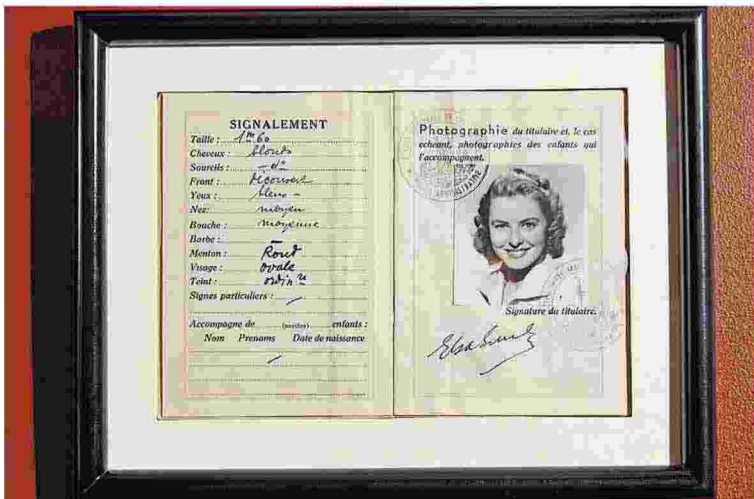 SIGNALEMENT
Taille : 1m60
Cheveux : blonds
Sourcils : - do -
Front : découvert
Yeux : bleus -
Nez: moyen
Bouche : moyenne
Barbe : -
Menton : Rond
Visage : ovale
Teint : ordinre
Signes particuliers : /
Accompagne de (nombre) enfants :
Nom Prenams Date de naissance
/
Photographie du titulaire et, le cas
echeant, photographies des enfants qui
l'accompagnent.
Signature du titulaire.
Elsa